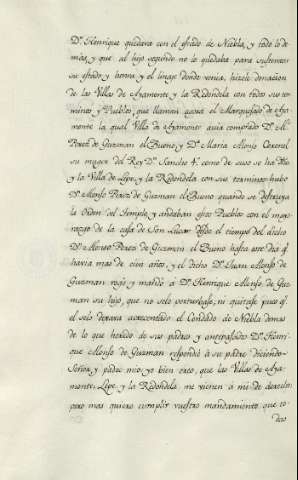 Dⁿ. Henrique quedava con el estado de Niebla, y todo lo de-
mas, y que al hijo segundo no le quedaba para sustentar
su estado y honra y el linaje donde venia, hizele donacion
de las Villas de Ayamonte y la Redondela con todos sus ter-
minos y Pueblos, que llaman agora el Marquesado de Aya-
monte la qual Villa de Ayamonte avia comprado Dⁿ. Aº
Perez de Guzman el Bueno y Dª Maria Alonso Coronel
su muger del Rey Dⁿ. Sancho 4º como de suso se ha dho
y la Villa de Lepe, y la Redondela con sus terminos hubo
Dⁿ. Alonso Perez de Guzman el Bueno quando se destruyo
la Orden del Temple, y andaban estos Pueblos con el mayo-
razgo de la casa de San Lucar desde el tiempo del dicho
Dⁿ. Alonso Perez de Guzman el Bueno hasta este dia qe.
havia mas de cien años, y el dicho Dⁿ. Juan Alonso de
Guzman rogó y mandó á Dⁿ. Henrique Alonso de Guz-
man su hijo, que no selo perturbase, ni quitase pues qe.
el selo dexava acrecentado el Condado de Niebla demas
de lo que heredó de sus padres y antepasados Dⁿ. Henri-
que Alonso de Guzman respondió á su padre diciendo=
Señor, y padre mio yo bien creo, que las Villas de Aya-
monte, Lepe y la Redondela me vienen á mi de derecho,
pero mas quiero cumplir vuestro mandamiento que to-
dos